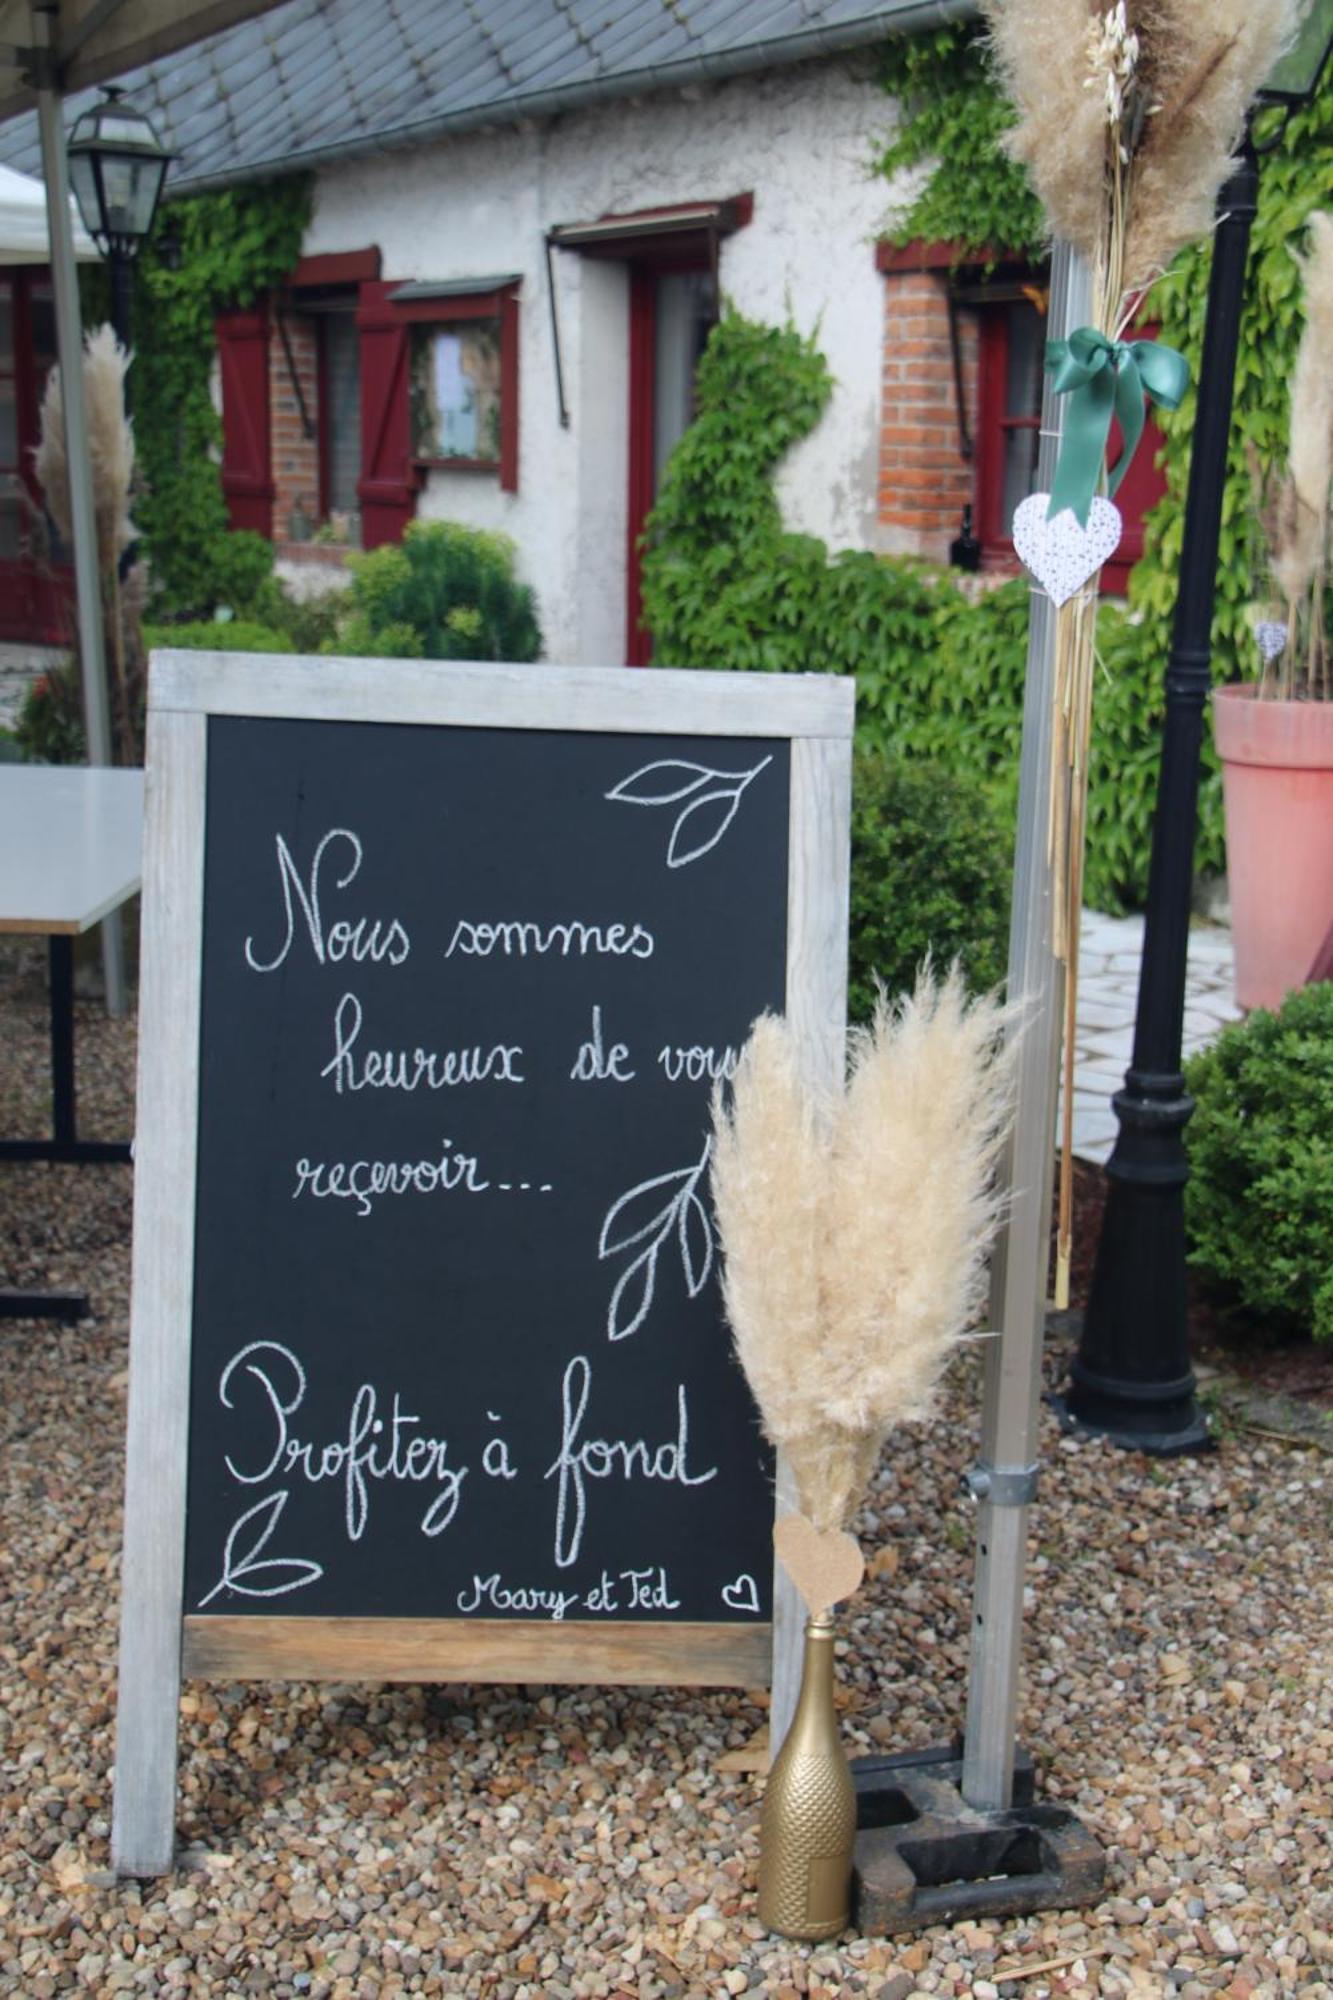 Nous sommes
heureux de vous
reçevoir...
Profitez à fond
Mary et Ted